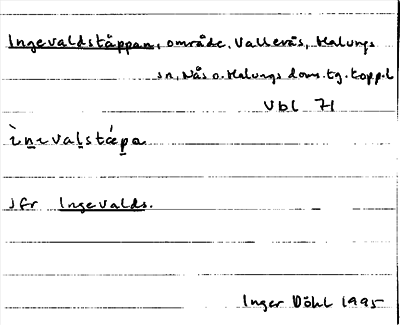 Ingevaldstäppan, område, Vallerås, Malungs
sn, Nås o. Malungs doms. tg. Kopp. l
Vbl 71
ìnevalstæ̀pa
Jfr Ingevalds.
Inger Döhl 1995